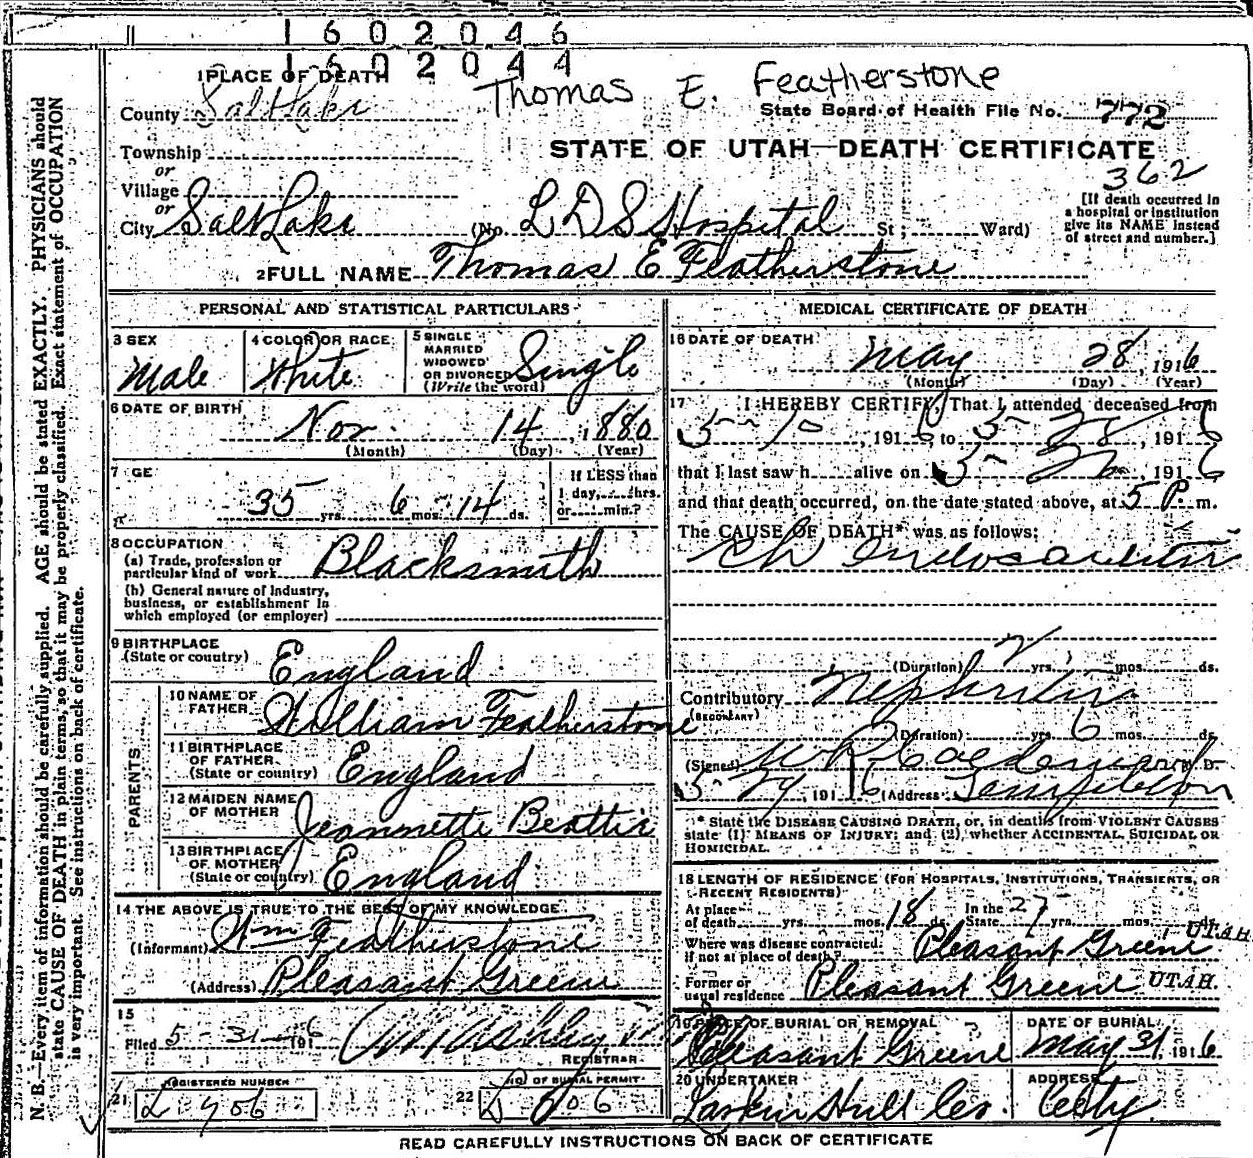 1602046
1602044
1 PLACE OF DEATH
Thomas E. Featherstone
County Salt Lake
State Board of Health File No. 772
Township
STATE OF UTAH—DEATH CERTIFICATE
or
362
Village
or
City Salt Lake (No. L D S Hospital St; Ward)
[If death occurred in
a hospital or institution
give its NAME instead
of street and number.]
2 FULL NAME Thomas E Featherstone
PERSONAL AND STATISTICAL PARTICULARS
3 SEX
Male
4 COLOR OR RACE
White
5 SINGLE
MARRIED
WIDOWED
OR DIVORCED
(Write the word)
Single
6 DATE OF BIRTH
Nov. 14, 1880
(Month) (Day) (Year)
7 GE
35 yrs. 6 mos. 14 ds.
If LESS than
1 day, hrs.
or min.?
8 OCCUPATION
(a) Trade, profession or
particular kind of work Blacksmith
(b) General nature of Industry,
business, or establishment in
which employed (or employer)
9 BIRTHPLACE
(State or country) England
PARENTS
10 NAME OF
FATHER William Featherstone
11 BIRTHPLACE
OF FATHER
(State or country) England
12 MAIDEN NAME
OF MOTHER Jeannette Beattie
13 BIRTHPLACE
OF MOTHER
(State or country) England
14 THE ABOVE IS TRUE TO THE BEST OF MY KNOWLEDGE
(Informant) Wm Featherstone
(Address) Pleasant Greene
15
Filed 5-31-1916
REGISTRAR
21 REGISTERED NUMBER
L 906
22 NO. OF BURIAL PERMIT
MEDICAL CERTIFICATE OF DEATH
16 DATE OF DEATH
May 28, 1916
(Month) (Day) (Year)
17 I HEREBY CERTIFY, That I attended deceased from
5-10, 1916 to 5-28, 1916
that I last saw h alive on 5-, 1916
and that death occurred, on the date stated above, at 5 P. m.
The CAUSE OF DEATH* was as follows:
Ch Endocarditis
(Duration) 2 yrs. mos. ds.
Contributory Nephritis
(SECONDARY)
(Duration) yrs. 6 mos. ds.
(Signed) M. D.
5-29, 1916 (Address) Templeton
* State the DISEASE CAUSING DEATH, or, in deaths from VIOLENT CAUSES
state (1) MEANS OF INJURY; and (2) whether ACCIDENTAL, SUICIDAL OR
HOMICIDAL.
18 LENGTH OF RESIDENCE (FOR HOSPITALS, INSTITUTIONS, TRANSIENTS, OR
RECENT RESIDENTS)
At place
of death yrs. mos. 18 ds. In the
State 27 yrs. mos. ds.
Where was disease contracted
if not at place of death? Pleasant Greene UTAH
Former or
usual residence Pleasant Greene UTAH.
19 PLACE OF BURIAL OR REMOVAL
Pleasant Greene
DATE OF BURIAL
May 31, 1916
20 UNDERTAKER
Larkin Hull Co.
ADDRESS
City
READ CAREFULLY INSTRUCTIONS ON BACK OF CERTIFICATE
N. B.—Every item of information should be carefully supplied. AGE should be stated EXACTLY. PHYSICIANS should
state CAUSE OF DEATH in plain terms, so that it may be properly classified. Exact statement of OCCUPATION
is very important. See instructions on back of certificate.